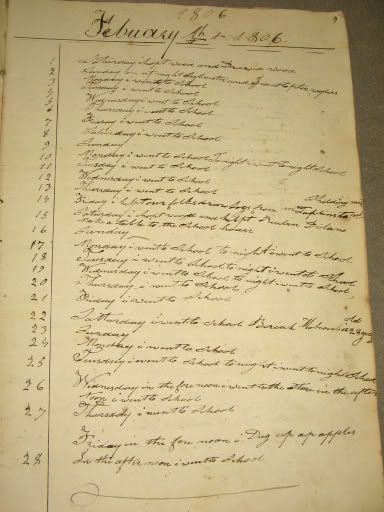 1806
9
February th 1 1806
1 Satturday i chopt wood and wood
2 Sunday
3 Monday i went to School
4 Tuesday i went to School
5 Wednesday i went to School
6 Thursday i went to School
7 Friday i went to School
8 Satturday i went to School
9 Sunday
10 Monday i went to School to night i went to night School
11 Tuesday i went to School
12 Wednesday i went to School
13 Thursday i went to School
14 Friday i left our folks drawn logs from
15 Satturday i chopt wood and
take a table to the School house
16 Sunday
17 Monday i went to School to night i went to School
18 Tuesday i went to School to night i went to School
19 Wednesday i went to School to night went to School
20 Thursday i went to School
21 Friday i went to School
22 Satturday i went to School
23 Sunday
24 Monday i went to School
25 Tuesday i went to School to night i went to night School
26 Wednesday in the fore noon i went to the Store in the after
Noon i went to School
27 Thursday i went to School
Friday in the fore noon i Dug up ap apples
28 In the after noon i went to School